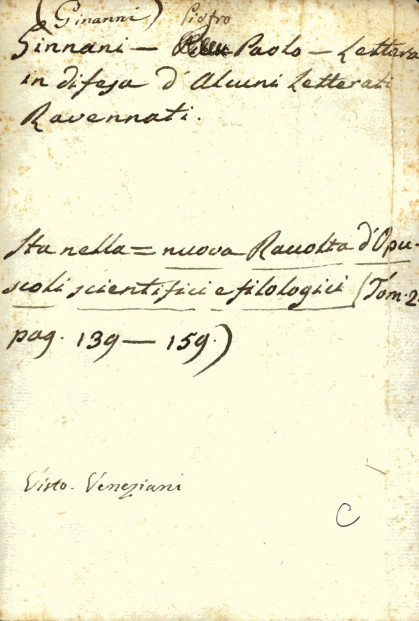 (Ginanni) Pietro
Ginnani — Paolo — Lettera
in difesa d'Alcuni Letterati
Ravennati.
Sta nella = nuova Raccolta d'Opu-
scoli scientifici e filologici (Tom. 2.
pag. 139 — 159.)
Visto. Veneziani
C